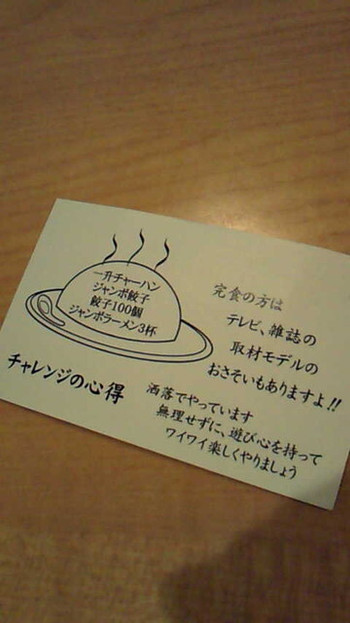 一升チャーハン
ジャンボ餃子
餃子100個
ジャンボラーメン3杯
完食の方は
テレビ、雑誌の
取材モデルの
おさそいもありますよ!!
チャレンジの心得
洒落でやっています
無理せずに、遊び心を持って
ワイワイ楽しくやりましょう